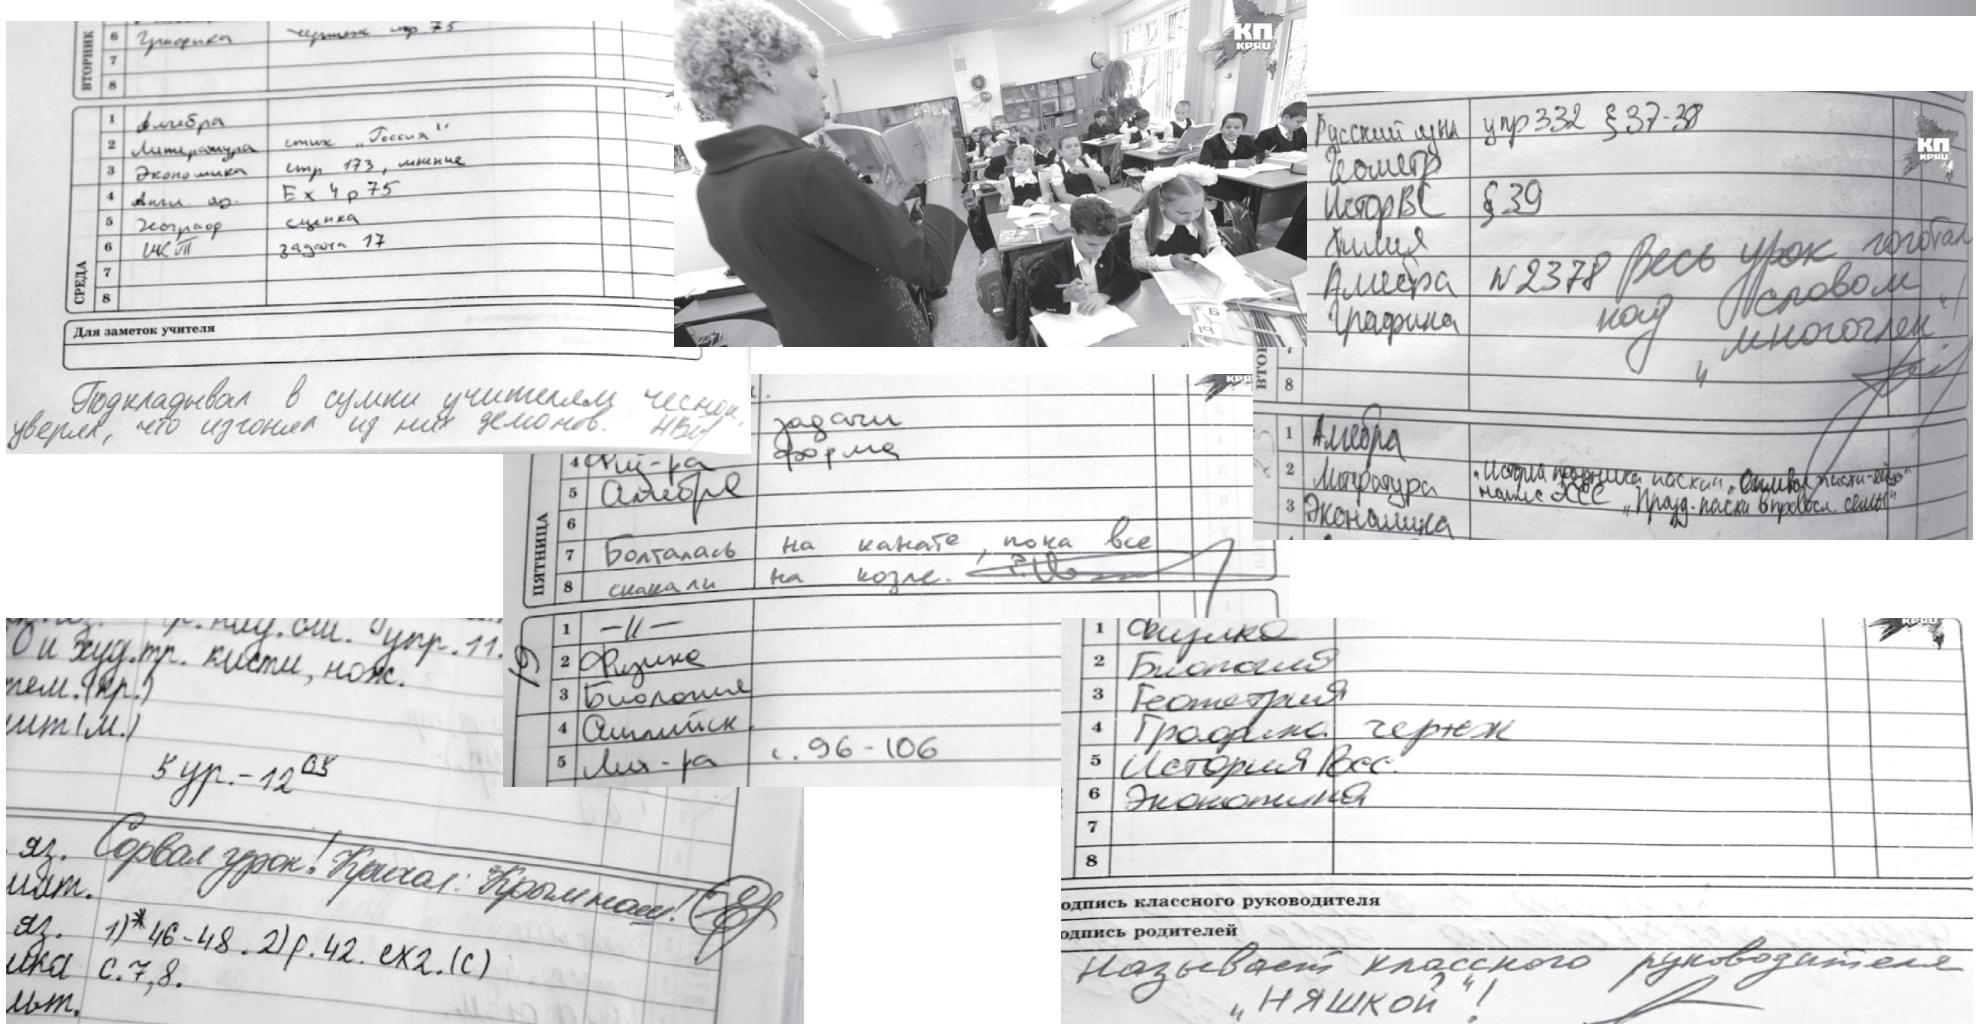 ВТОРНИК
6 Графика чертеж стр 75
7
8
СРЕДА
1 Алгебра
2 Литература стих „Россия"
3 Экономика стр 173, мнение
4 Англ. яз. Ex 4 p 75
5 Географ сценка
6 ИКТ задача 17
7
8
Для заметок учителя
Подкладывал в сумки учителям чеснок,
уверял, что изгонял из них демонов.
КП
KP.RU
Русский язык упр 332 § 37-38
Геометр
Истор ВС § 39
Химия
Алгебра N 2378
Графика
Весь урок гоготал
над словом
„многочлен"!
8
1 Алгебра
2 Литература
3 Экономика
КП
KP.RU
задачи
4 Физ-ра форма
5 Алгебра
6
7 Болталась на канате, пока все
8 скакали на козле.
ПЯТНИЦА
1 —//—
2 Физика
3 Биология
4 Английск.
5 Лит-ра с. 96-106
KP.RU
упр. 11.
худ. тр. кисти, нож.
5 ур. - 12 05
яз. Сорвал урок! Кричал: Крым наш!
яз. 1)* 46-48. 2) p. 42. ex 2. (c)
с. 7, 8.
1 Физика
2 Биология
3 Геометрия
4 Графика чертеж
5 История Всс.
6 Экономика
7
8
одпись классного руководителя
одпись родителей
Называет классного руководителя
„НЯШКОЙ"!
KP.RU